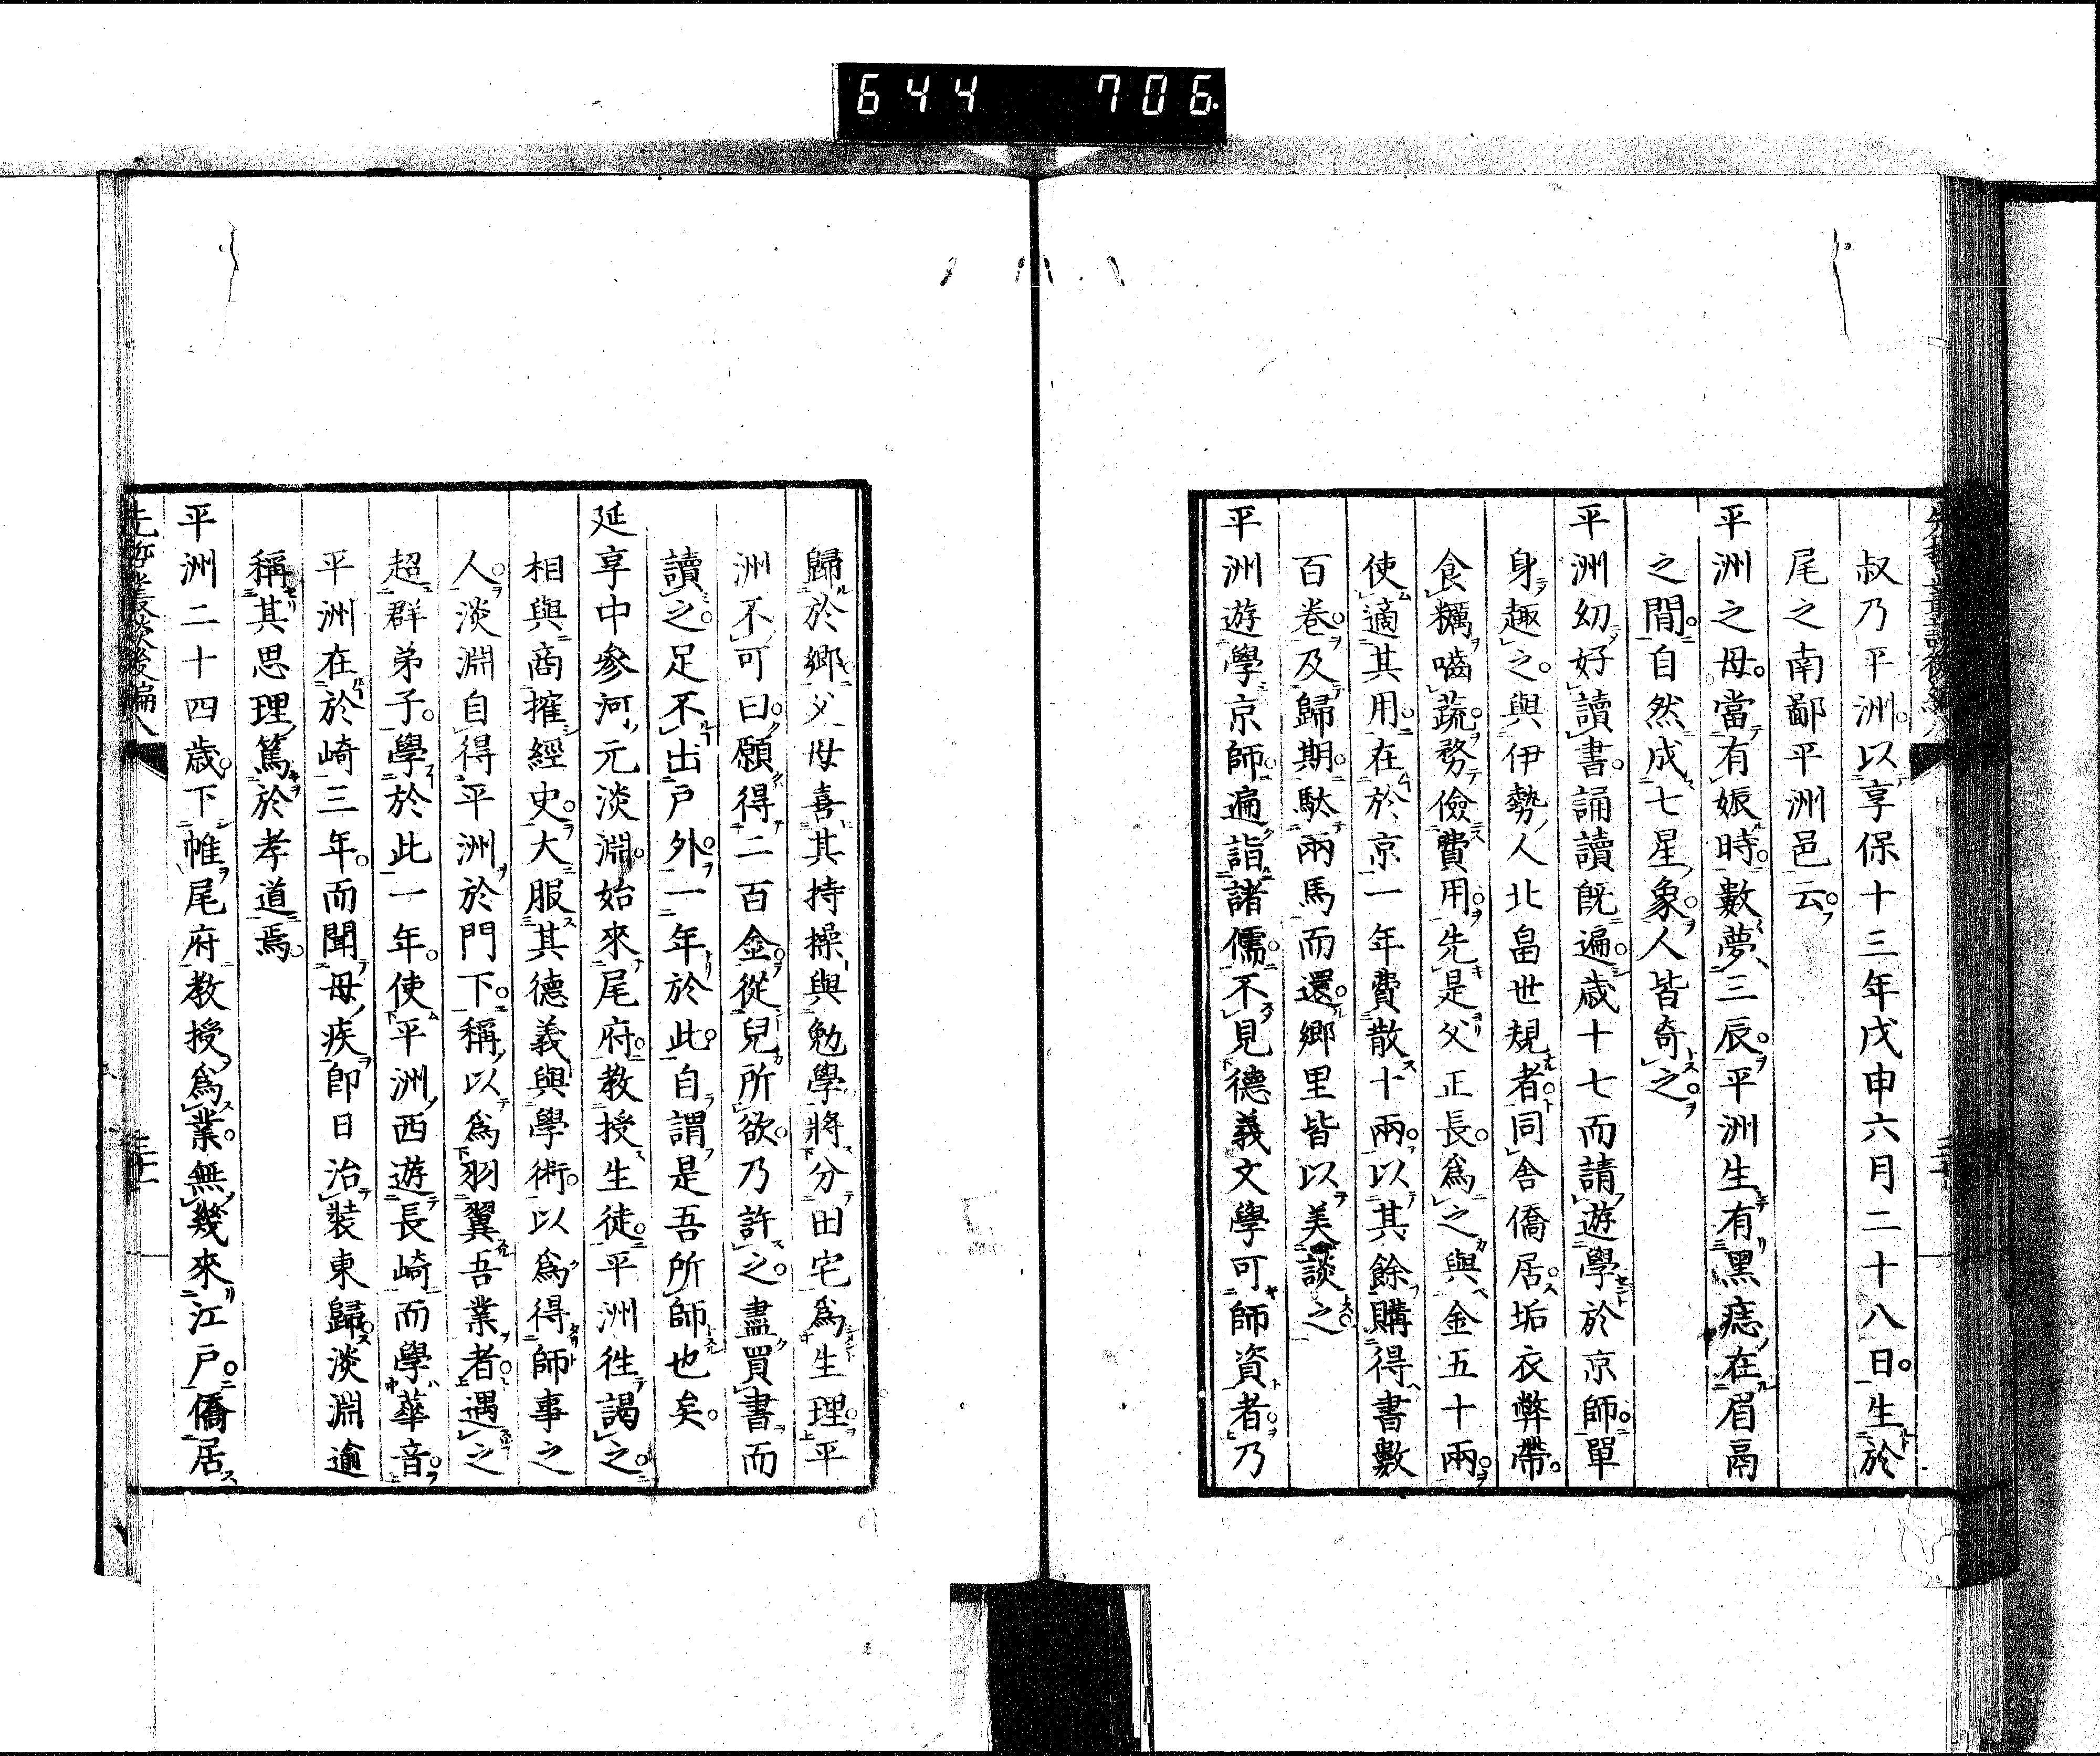 644 706
叔乃平洲。以享保十三年戊申六月二十八日。生於
尾之南鄙平洲邑云。
平洲之母。當有娠時。數夢三辰。平洲生有黑痣在眉鬲
之間。自然成七星象。人皆奇之。
平洲幼好讀書。誦讀既遍。歲十七而請遊學於京師。單
身趣之。與伊勢人北畠世規者。同舍僑居。垢衣弊帶。
食糲嚙蔬。務儉費用。先是父正長。爲之與金五十兩。
使適其用。在於京一年。費散十兩。以其餘購得書數
百卷。及歸期。駄兩馬而還。鄉里皆以美談之。
平洲遊學京師。遍詣諸儒。不見德義文學可師資者。乃
歸於鄉。父母喜其持操與勉學。將分田宅爲生理。平
洲不可曰。願得二百金。從兒所欲。乃許之。盡買書而
讀之。足不出戶外。一年於此。自謂是吾所師也矣。
延享中參河元淡淵。始來尾府。教授生徒。平洲徃謁之。
相與商搉經史。大服其德義與學術。以爲得師事之
人。淡淵自得平洲於門下。稱以爲羽翼吾業者。遇之
超群弟子。學於此一年。使平洲西遊長崎而學華音。
平洲在於崎三年。而聞母疾。即日治裝東歸。淡淵逾
稱其思理篤於孝道焉。
平洲二十四歲。下帷尾府。教授爲業。無幾來江戶。僑居
先哲叢談後編八
三十一